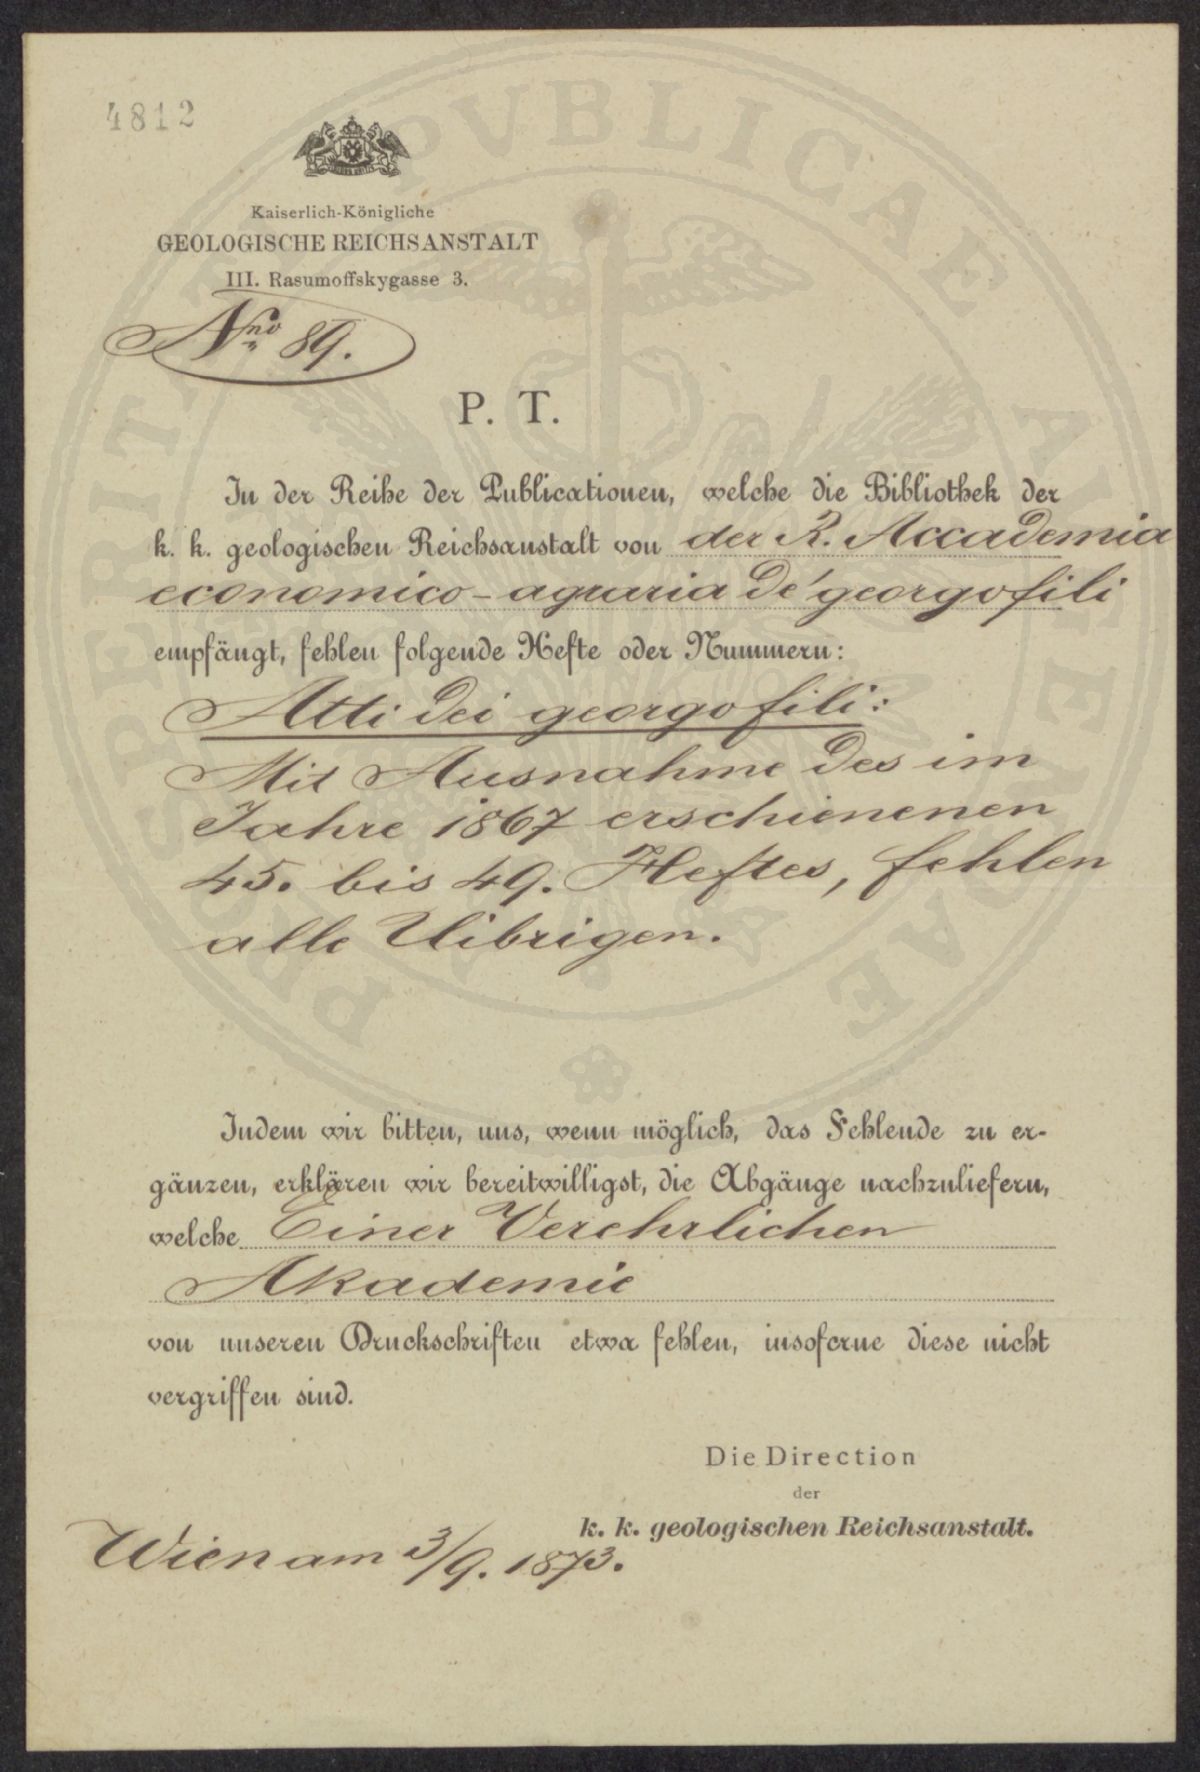 4812
Kaiserlich-Königliche
GEOLOGISCHE REICHSANSTALT
III. Rasumoffskygasse 3.
Nro 89.
P. T.
In der Reihe der Publicationen, welche die Bibliothek der
k. k. geologischen Reichsanstalt von der R. Accademia
economico-agraria de' georgofili
empfängt, fehlen folgende Hefte oder Nummern:
Atti dei georgofili:
Mit Ausnahme des im
Jahre 1867 erschienenen
45. bis 49. Heftes, fehlen
alle Uibrigen.
Indem wir bitten, uns, wenn möglich, das Fehlende zu er-
gänzen, erklären wir bereitwilligst, die Abgänge nachzuliefern,
welche Einer Verehrlichen
Akademie
von unseren Druckschriften etwa fehlen, insoferne diese nicht
vergriffen sind.
Die Direction
der
k. k. geologischen Reichsanstalt.
Wien am 3/9. 1873.
PROSPERITATI PVBLICAE AVGENDAE